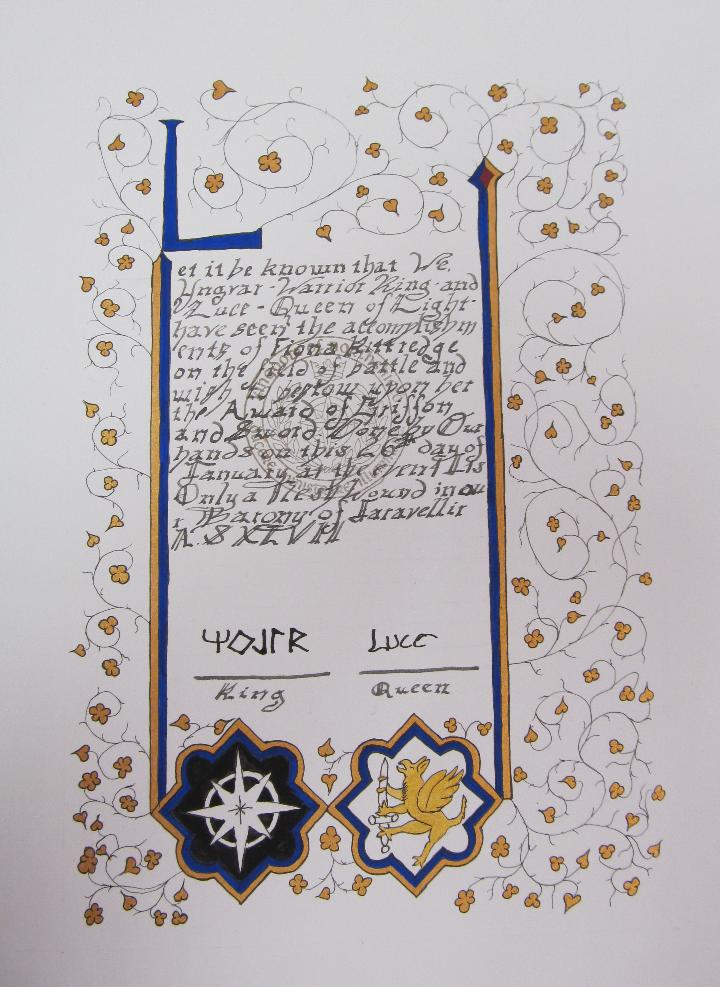 Let it be known that We,
Yngvar - Warrior King and
Luce - Queen of Light
have seen the accomplishm
ents of Fiona Kittredge
on the field of battle and
wish bestow upon her
the Award of Griffon
and Sword Done by Our
hands on this 26 day of
January, at the event Tis
Only a Flesh Wound in ou
r Barony of Jaravellir
A.S XLVII
Luce
King Queen